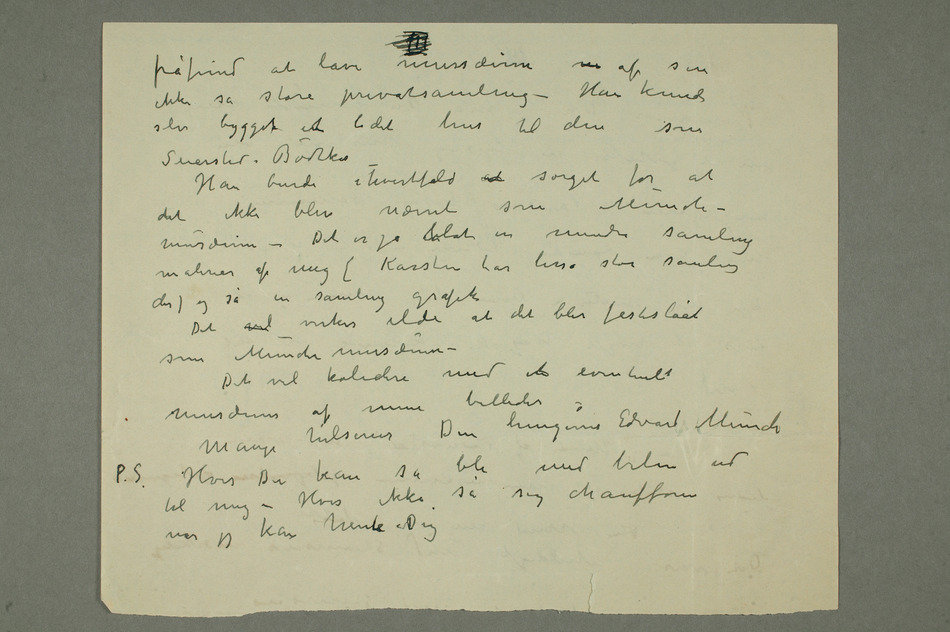 påfund at lave mussæum af sin
ikke så store privatsamling – Han kunde
selv bygget et lidet hus til den som
Suersted. Bödtker
Han burde ihvertfald sørget for at
det ikke blev nævnt som Münch-
musæum – Det er jo blot en mindre samling
malerier af mig ( Karsten har lisså stor samling
der) og så en samling grafik
Det virker ilde at det blir festslåat
som Münch musæum –
Det vil kolidere med et eventuelt
musæum af mine billeder
Mange hilsener Din hengivne Edvard Münch
P.S. Hvis Du kan så bli med bilen ud
til mig – Hvis ikke så sig chaufføren
når jeg kan hente Dig